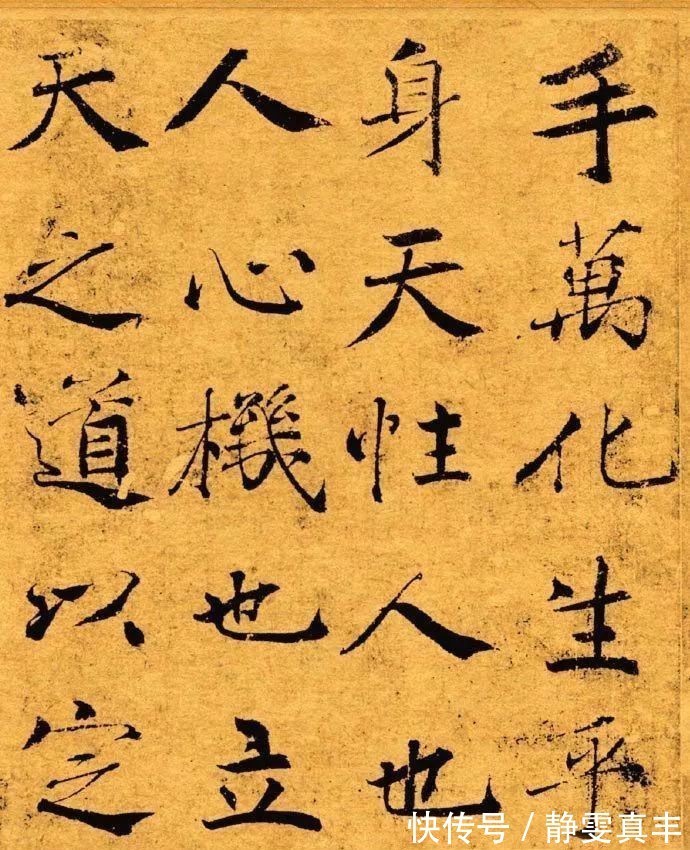 手萬化生乎
身天性人也
人心機也立
天之道以定
快传号/静雯真丰